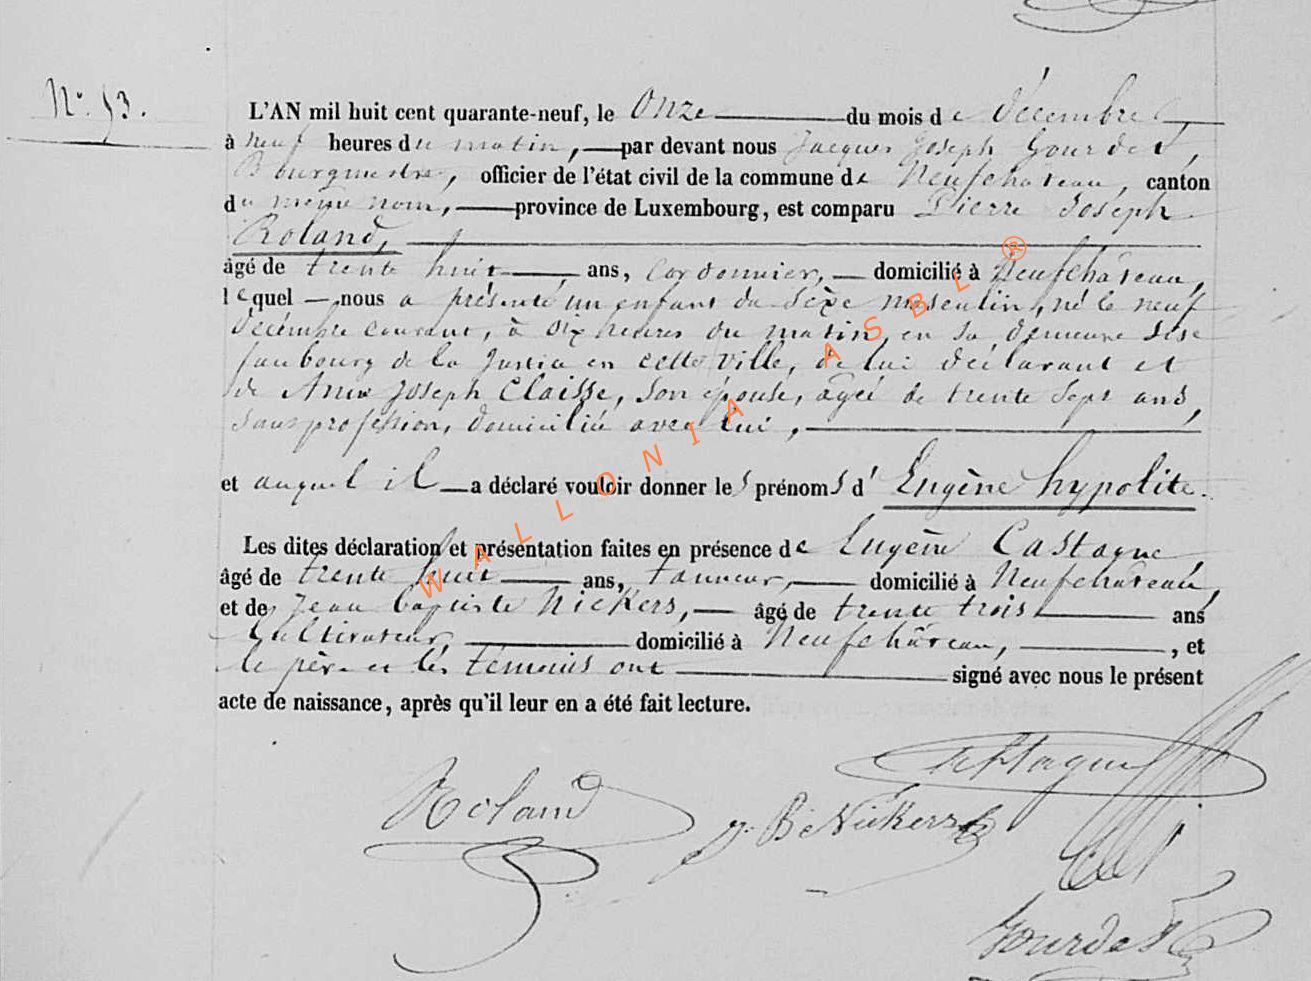 N° 53.
L'AN mil huit cent quarante-neuf, le Onze du mois de décembre,
à neuf heures du matin, par devant nous Jacques Joseph Gourdet,
Bourgmestre, officier de l'état civil de la commune de Neufchateau, canton
du même nom, province de Luxembourg, est comparu Pierre Joseph
Roland,
âgé de trente huit ans, Cordonnier, domicilié à Neufchâteau,
lequel nous a présenté un enfant du sexe masculin, né le neuf
décembre courant, à dix heures du matin, en sa demeure sise
faubourg de la Justice en cette ville, de lui déclarant et
de Anne Joseph Claisse, son épouse, agée de trente sept ans,
sans profession, domiciliée avec lui,
et auquel il a déclaré vouloir donner les prénoms d' Eugène hypolite.
Les dites déclaration et présentation faites en présence de Eugène Castagne
âgé de trente huit ans, tanneur, domicilié à Neufchâteau,
et de Jean baptiste Nickers, âgé de trente trois ans
Cultivateur, domicilié à Neufchâteau, , et
le père et les témoins ont signé avec nous le présent
acte de naissance, après qu'il leur en a été fait lecture.
Roland
Castagne
J. Bte Nickers
Gourdet
WALLONIA ASBL ®